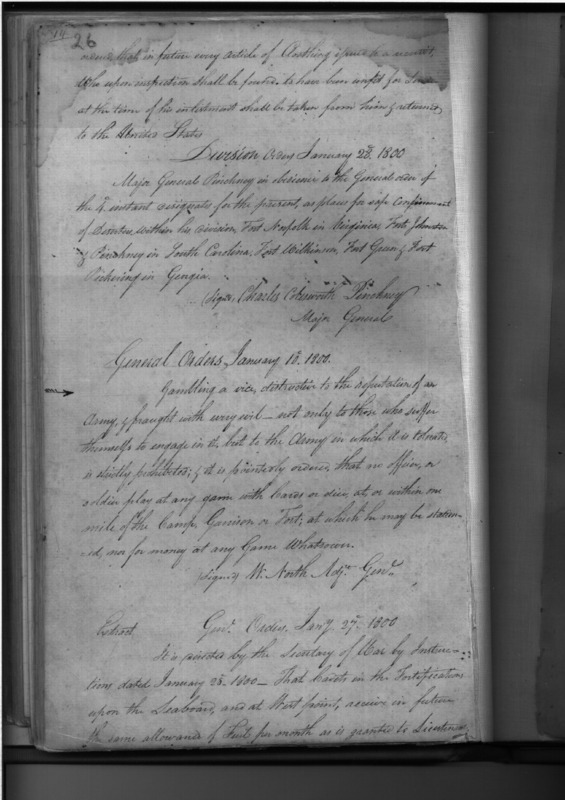 26
that in future every article of Cloathing issued to a recruit,
who upon inspection shall be found to have been unfit for
at the time of his inlistment shall be taken from him & returned
to the United States
Division Orders January 28. 1800
Major General Pinckney in obedience to the General order of
the 4. instant designates for the present, as places for safe confinement
of within his Division, Fort Norfolk in Virginia, Forts Johnston
& Pinckney in South Carolina, Fort Wilkinson, Fort Green & Fort
Pickering in Georgia.
Signed, Charles Cotesworth Pinckney
Major General
General Orders January 18. 1800.
Gambling a vice, distructive to the reputation of an
Army, & fraught with every evil — not only to those who suffer
themselves to engage in it, but to the Army in which it is tolerated,
is strictly prohibited; & it is pointedly ordered, that no officer, or
soldier play at any game with Cards or dice, at or within one
mile of the Camp, Garrison or Fort, at which he may be station-
=ed, nor for money at any Game Whatsoever.
signed, W. North Adjt. Genl.
Extract Genl. Orders, Jany. 27. 1800
It is directed by the Secretary of War by Instruc-
tions dated January 23. 1800 — That Cadets in the Fortifications
upon the Seaboard, and at West point, receive in future
the same allowance of Fuel per month as is granted to Lieutena